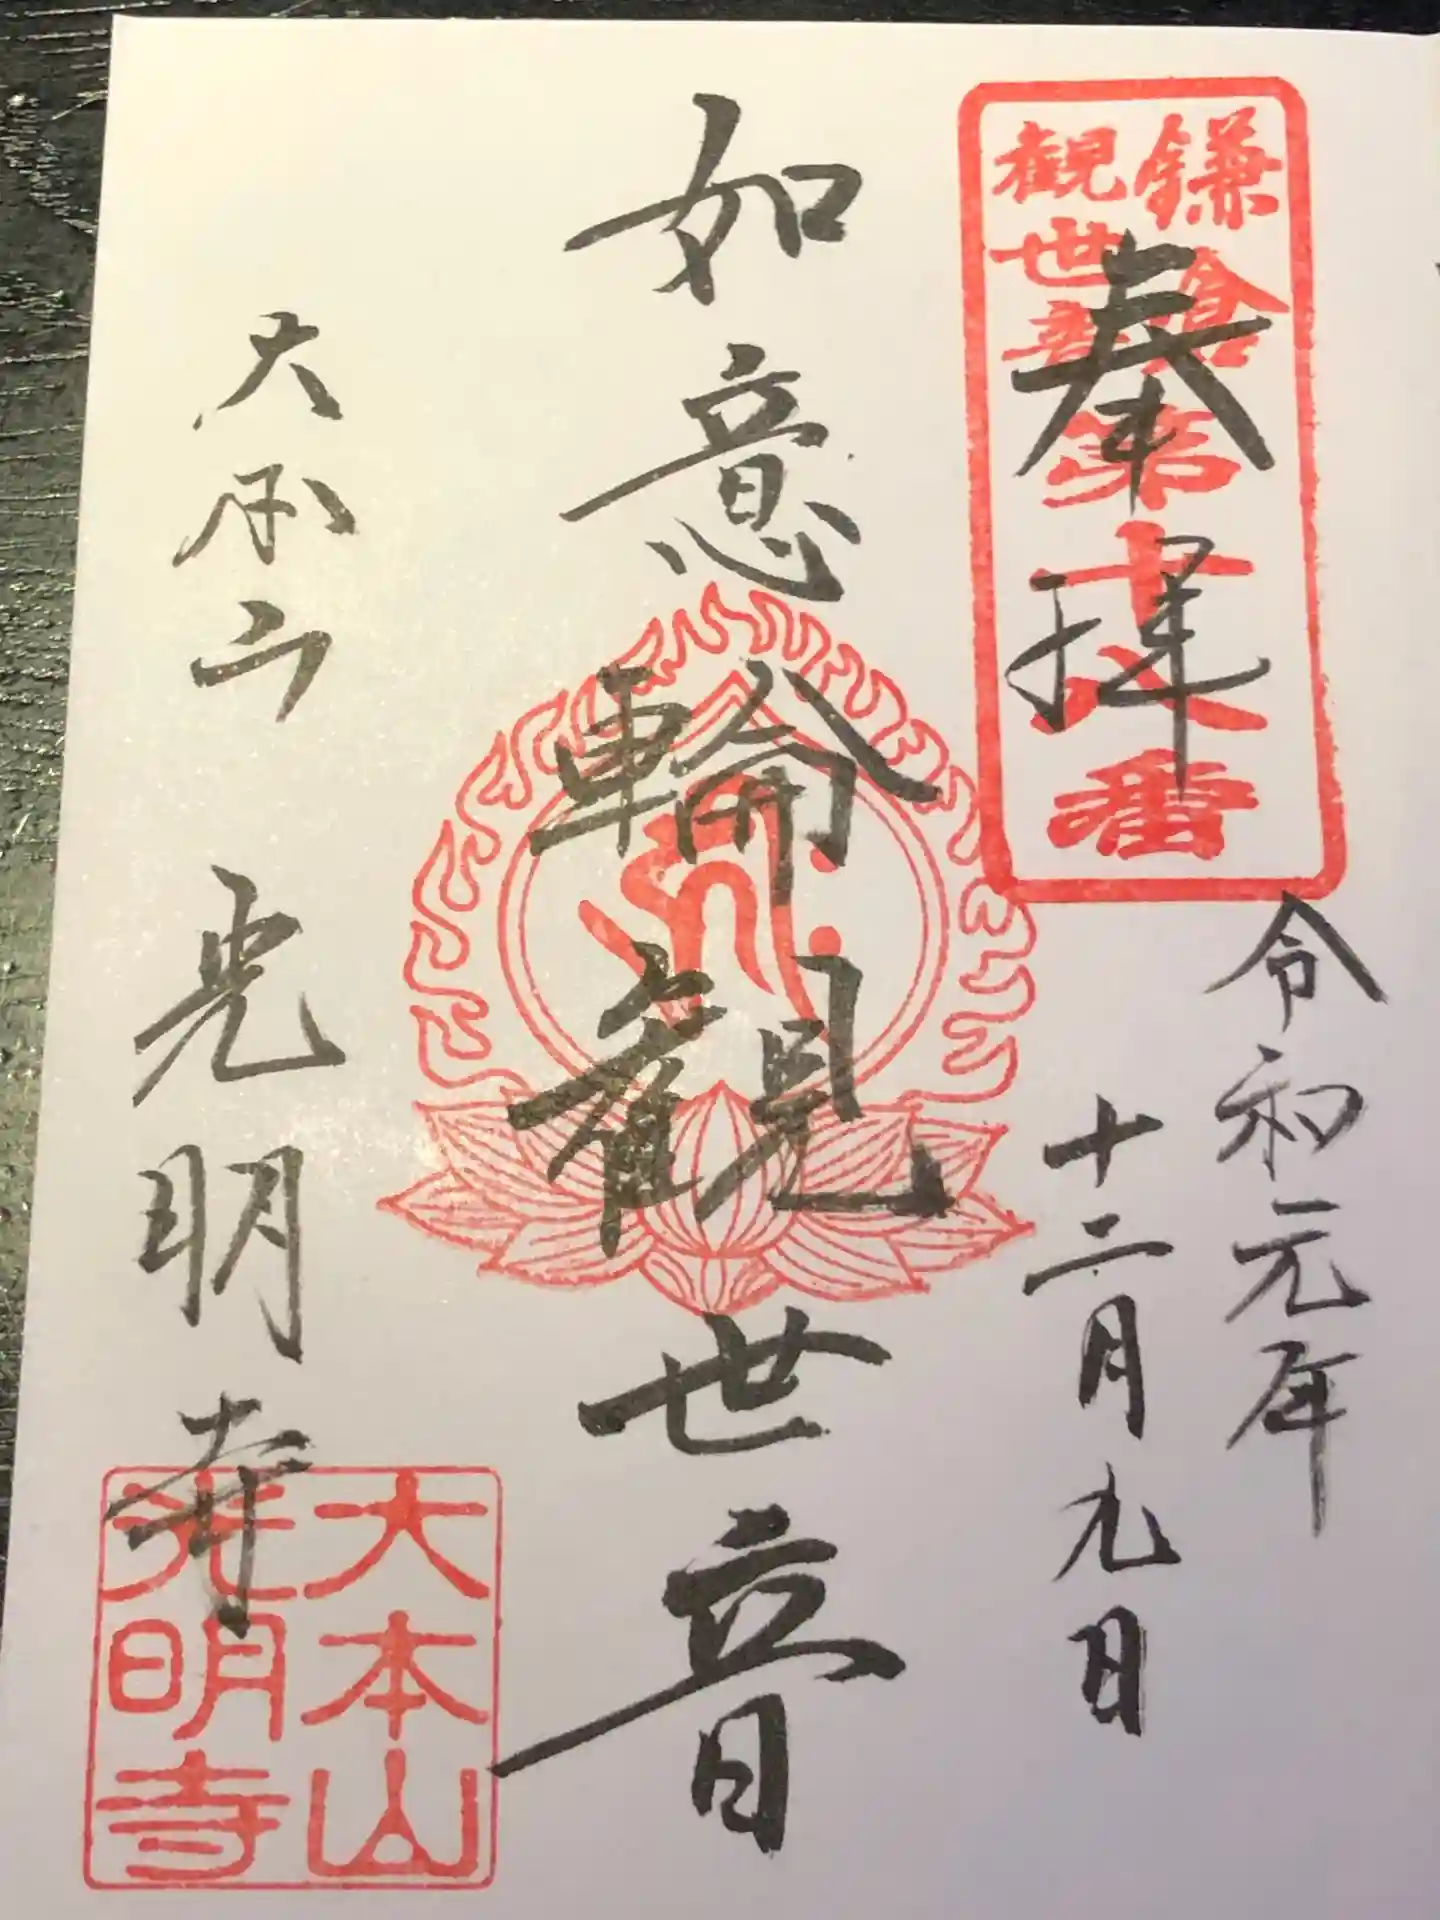 鎌倉
観世音
第十八番
奉拝
令和元年
十二月九日
如意輪観世音
大本山
光明寺
大本山
光明寺